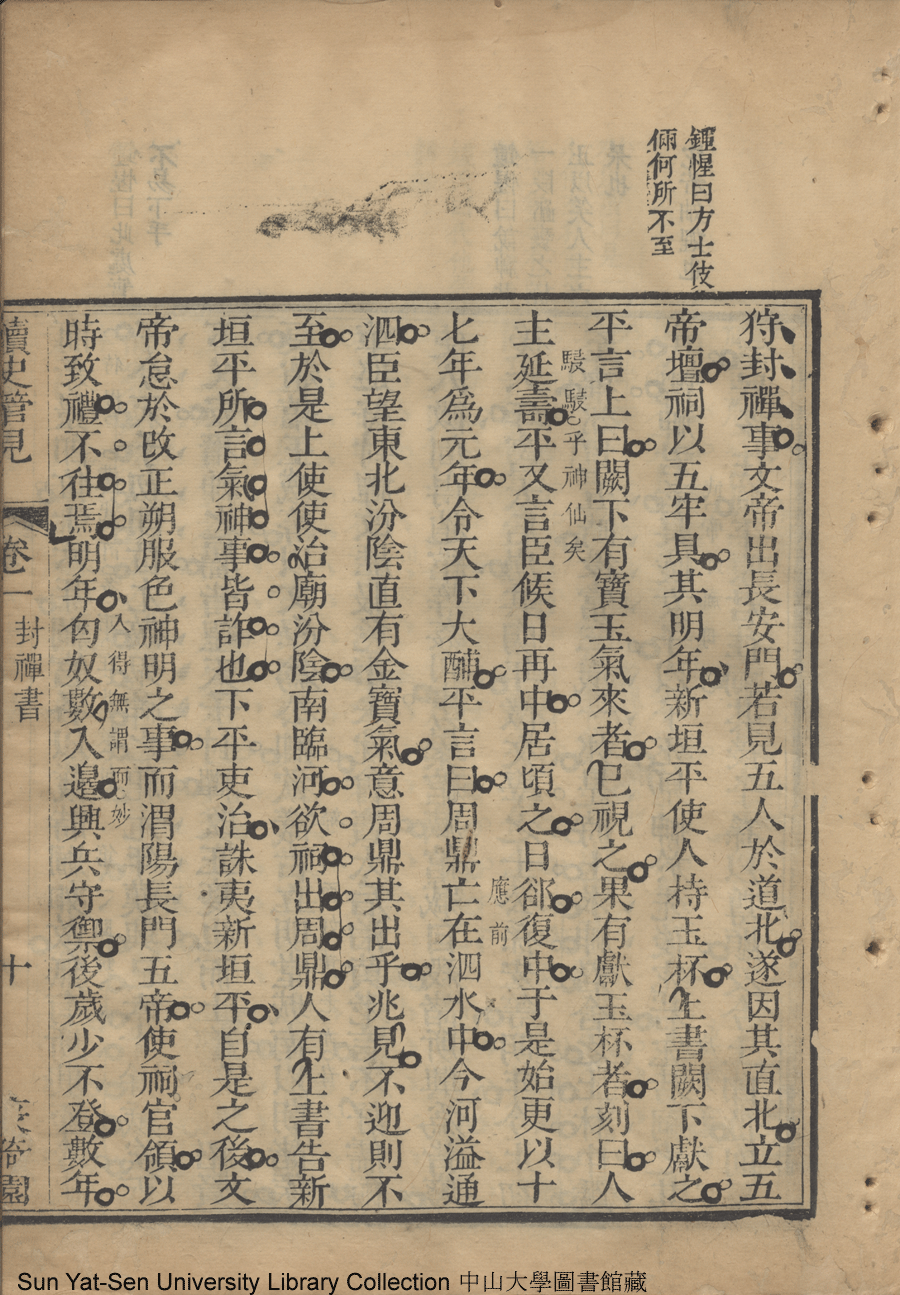 鍾惺曰方士伎
倆何所不至
狩封禪事文帝出長安門若見五人於道北遂因其直北立五
帝壇祠以五牢具其明年新垣平使人持玉杯上書闕下獻之
平言上曰闕下有寶玉氣來者已視之果有獻玉杯者刻曰人
駸駸乎神仙矣
主延壽平又言臣候日再中居頃之日郤復中于是始更以十
應前
七年爲元年令天下大酺平言曰周鼎亡在泗水中今河溢通
泗臣望東北汾陰直有金寶氣意周鼎其出乎兆見不迎則不
至於是上使使治廟汾陰南臨河欲祠出周鼎人有上書告新
垣平所言氣神事皆詐也下平吏治誅夷新垣平自是之後文
帝怠於改正朔服色神明之事而渭陽長門五帝使祠官領以
時致禮不往焉明年匈奴數入邊興兵守禦後歲少不登數年
人得無謂而妙
讀史管見
卷一
封禪書
十